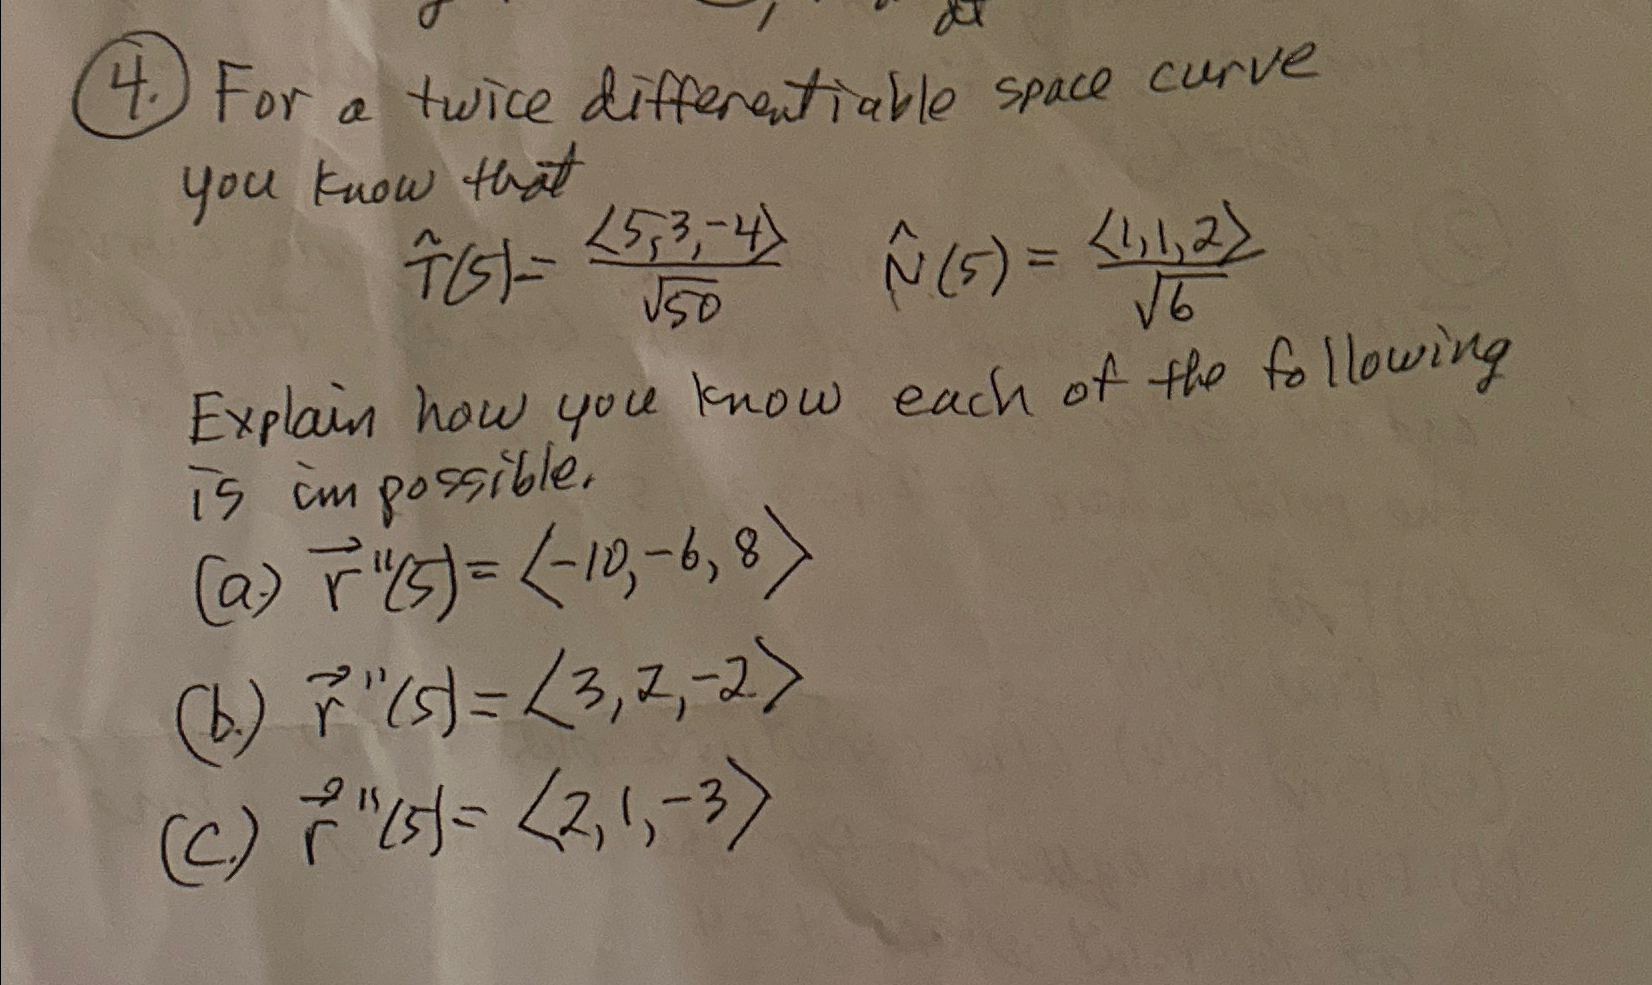 dt
4. For a twice differentiable space curve
you know that
T̂(5) = <5,3,-4>/√50 N̂(5) = <1,1,2>/√6
Explain how you know each of the following
is impossible.
(a.) r⃗''(5) = <-10,-6,8>
(b.) r⃗''(5) = <3,2,-2>
(c.) r⃗''(5) = <2,1,-3>